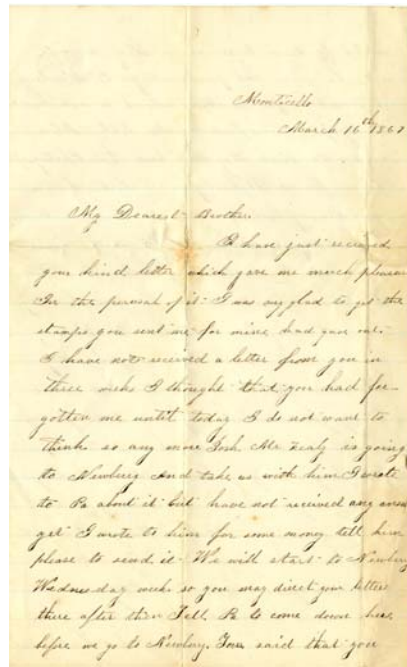 Monticello
March 16th 1861
My Dearest Brother
I have just received
your kind letter which gave me much pleasure
In the perusal of it I was very glad to get the
stamps you sent me for mine had gave out
I have not received a letter from you in
three weeks I thought that you had for-
gotten me until today I do not want to
think so any more Josh Mr Zealy is going
to Newberry And take us with him I wrote
to Pa about it but have not received any
yet I wrote to him for some money tell him
please to send it We will start to Newberry
Wednesday week so you may direct your letters
there after then Tell Pa to come down here
before we go to Newberry. You said that you